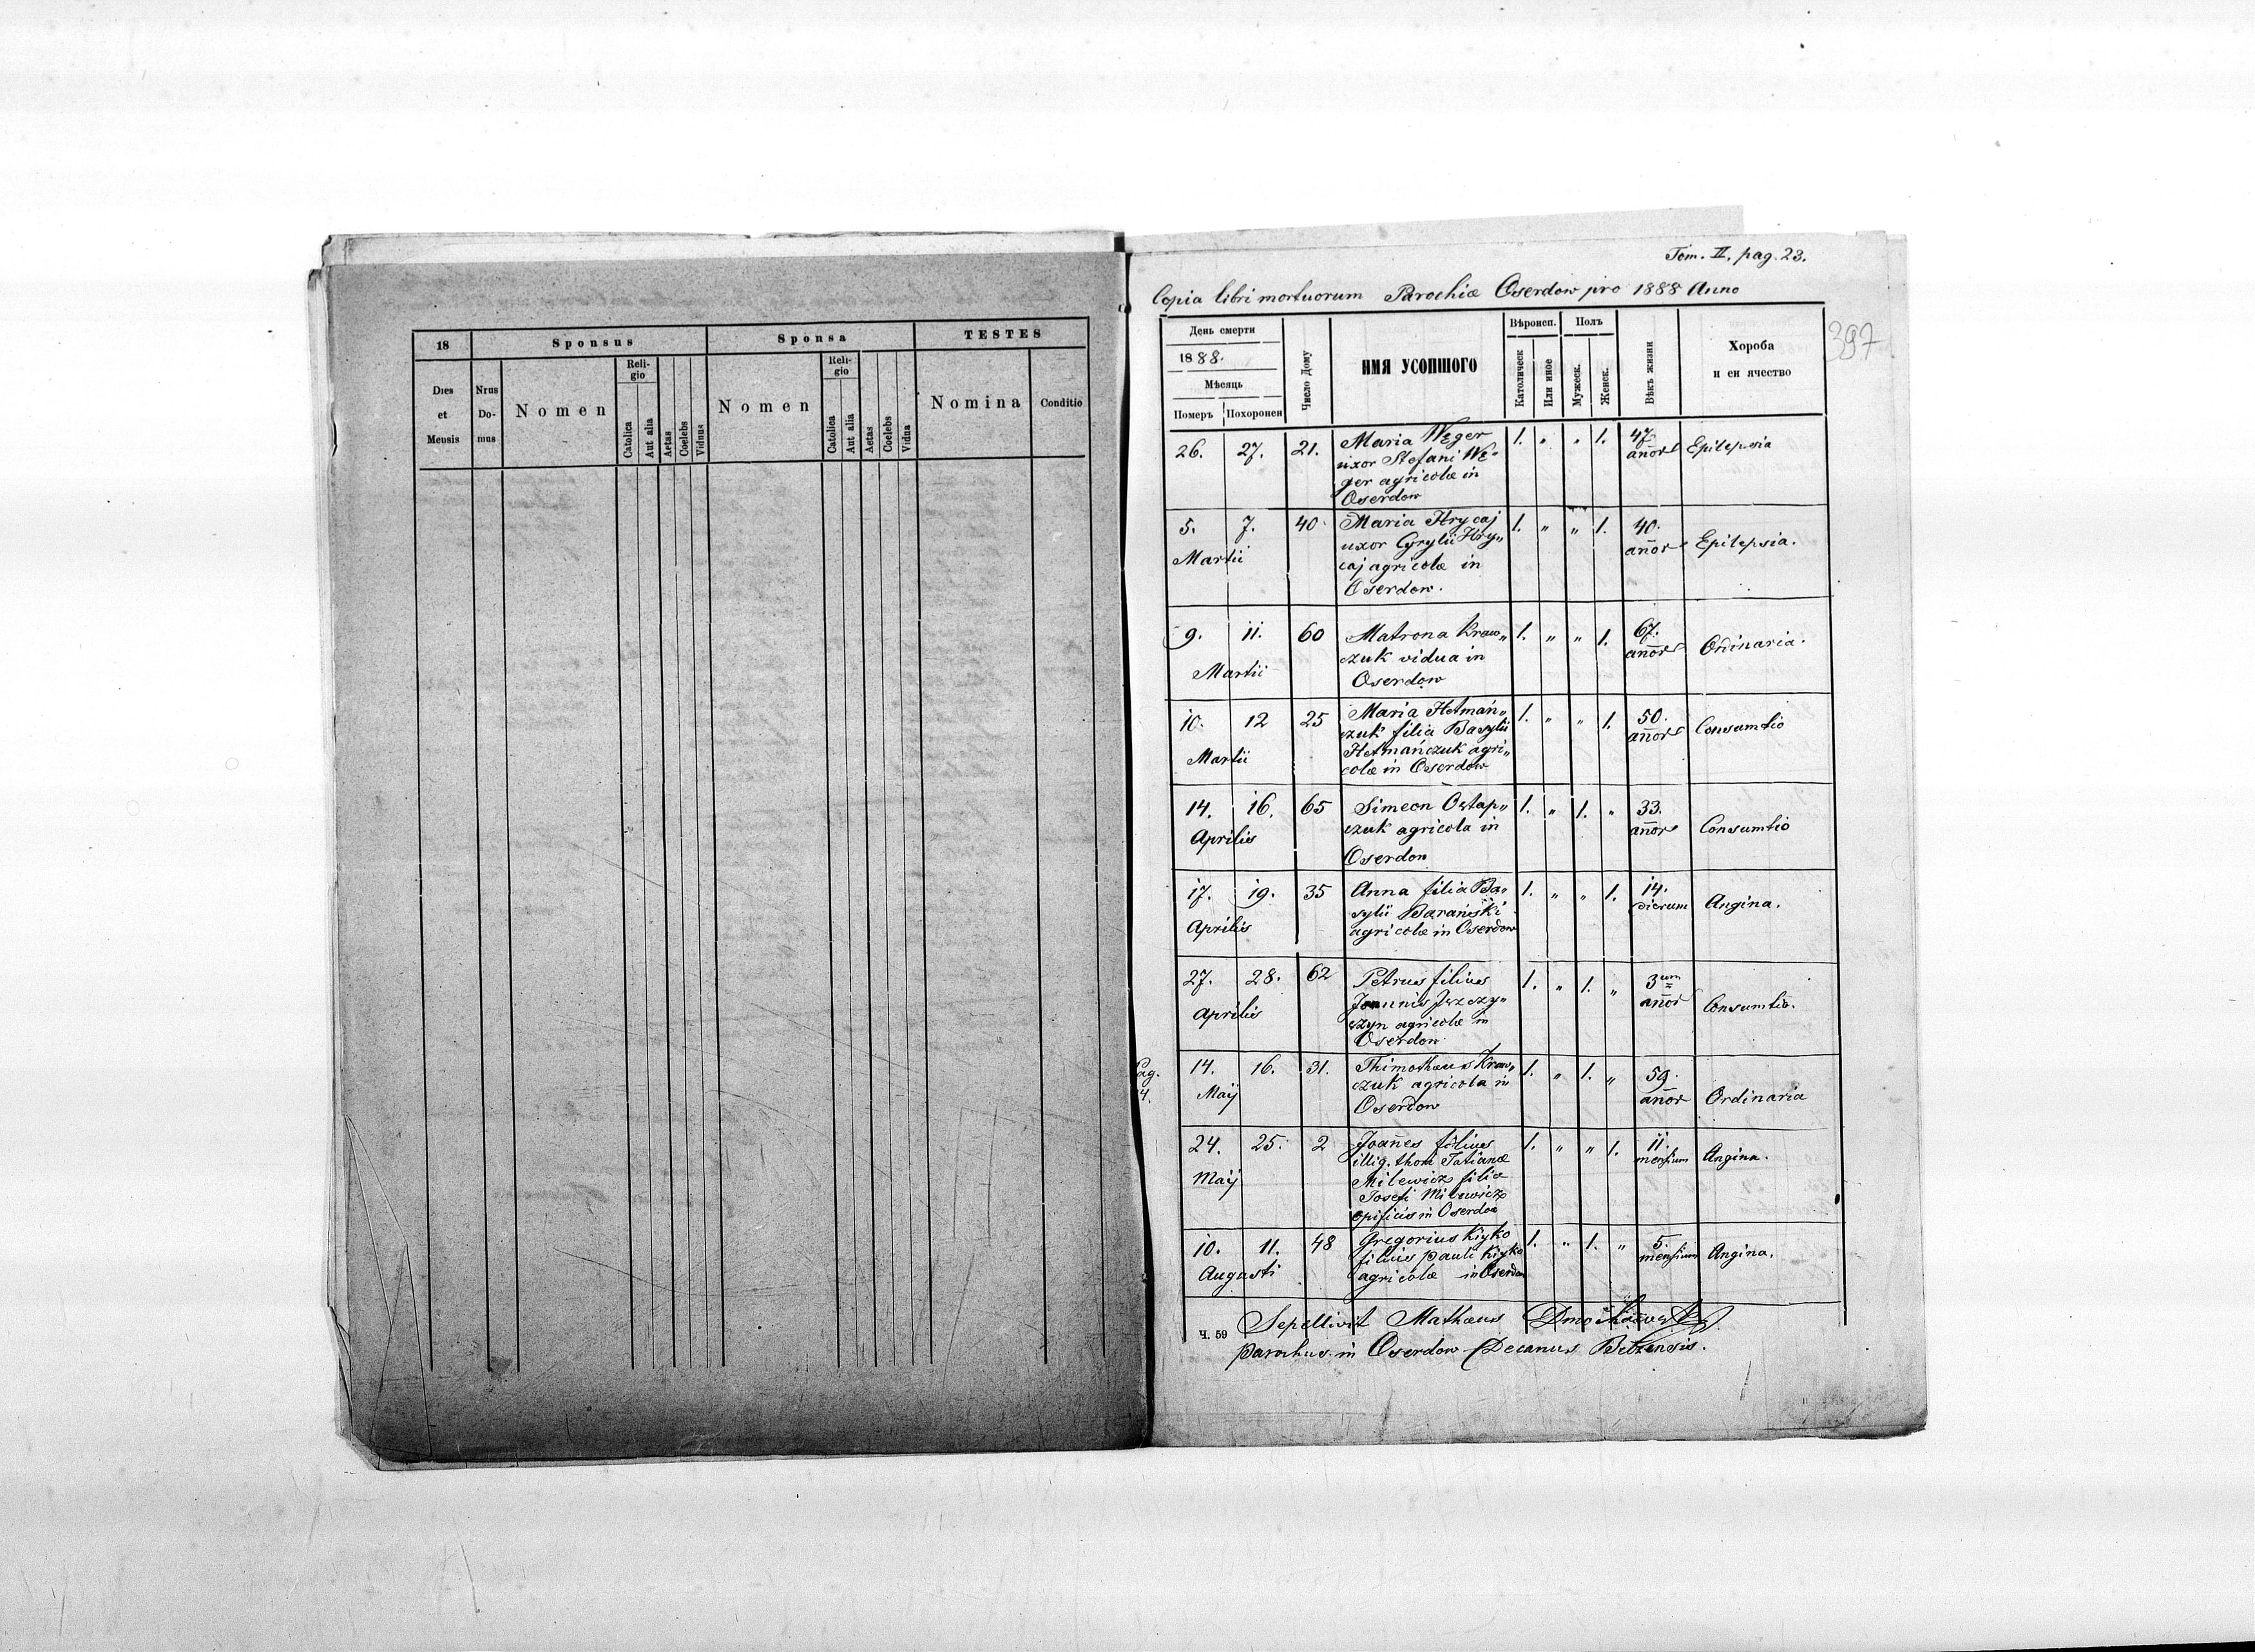 18
Sponsus
Sponsa
TESTES
Dies
et
Mensis
Nrus
Do-
mus
Nomen
Reli-
gio
Catolica
Aut alia
Aetas
Coelebs
Viduus
Nomen
Reli-
gio
Catolica
Aut alia
Aetas
Coelebs
Vidua
Nomina
Conditio
Tom. II, pag. 23.
Copia libri mortuorum Parochiæ Oserdow pro 1888 Anno
397
День смерти
1888.
Мѣсяць
Померъ
Похоронен
Число Дому
ИМЯ УСОПШОГО
Вѣроисп.
Католическ
Или иное
Полъ
Мужеск.
Женск.
Вѣкъ жизни
Хороба
и еи ячество
26. 27. 21. Maria Węger 1. " " 1. 47 Epilepsia
uxor Stefani Wę- añor
ger agricolæ in
Oserdow
5. 7. 40 Maria Hrycaj 1. " " 1. 40. Epilepsia.
Martii uxor Cyrylii Hry„ añor
caj agricolæ in
Oserdow.
9. 11. 60 Matrona Kraw„ 1. " " 1. 67. Ordinaria.
Martii czuk vidua in añor
Oserdow
10. 12 25 Maria Hetmań„ 1. " " 1. 50. Consumtio
Martii czuk filia Basylii añor
Hetmańczuk agri„
colæ in Oserdow
14. 16. 65 Simeon Ostap„ 1. " 1. " 33. Consumtio
Aprilis czuk agricola in añor
Oserdow
17. 19. 35 Anna filia Ba- 1. " " 1. 14. Angina.
Aprilis sylii Barański dierum
agricolæ in Oserdow
27. 28. 62 Petrus filius 1. " 1. " 3um Consumtio.
Aprilis Joannis añor
agricolæ in
Oserdow
Pag.
4.
14. 16. 31. Thimothæus Kraw„ 1. " 1. " 59. Ordinaria
Maij czuk agricola in añor
Oserdow
24. 25. 2 Joañes filius 1. " " 1. 11. Angina.
Maij illig. thori Tatianæ mensium
Milewicz filia
Josefi Milewicz
opificis in Oserdow
10. 11. 48 Gregorius Kiyko 1. " 1. " 5. Angina.
Augusti filius Pauli Kiyko mensium
agricolæ in Oserdow
Ч. 59
Sepellivit Mathæus
Parochus in Oserdow Decanus Belzensis.